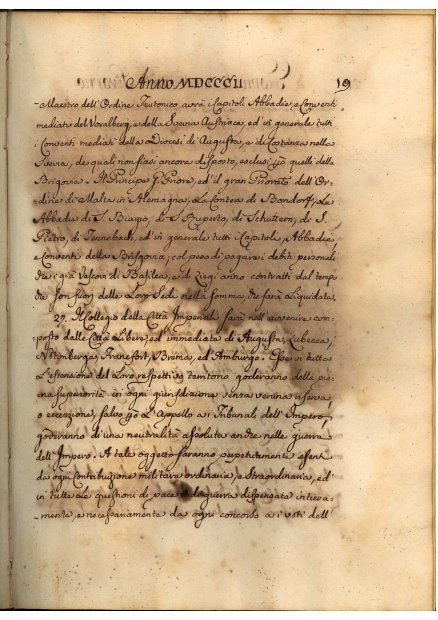 Anno MDCCCII
19
-Maestro dell'Ordine Teutonico avrà i Capitoli Abbadie, e Conventi
mediati del Voralberg, e della Svevia Austriaca, ed in generale tutti
i Conventi mediati della Diocesi di Augusta, e di Costanza nella
Svevia, de quali non siasi ancora disposto, esclusi quelli della
Brisgovia. Il Principe G. Priore, ed il gran Priorato dell'Or-
-dine di Malta in Alemagna, La Contea di Bondorf, Le
Abbadie di S. Biagio, di S. Ruperto, di Schuttern, di S.
Pietro, di Tennebach, ed in generale tutti i Capitoli, Abbadie,
e Conventi della Brisgovia, col peso di pagare i debiti personali
che i già Vescovi di Basilea, e di Liegi anno contratti dal tempo
che son fuori delle Loro Sede nella somma, che sarà Liquidata.
27. Il Collegio delle Città Imperiali sarà nell'avvenire com-
-posto dalle Città Libere, ed immediate di Augusta, Lubecca,
Norimberga, Francfort, Brema, ed Amburgo. Esse in tutta
L'estensione del Loro respettivo territorio goderanno della pie-
na superiorità in ogni giurisdizione senza veruna riserva
o eccezione, salvo L'Appello a i Tribunali dell'Impero,
goderanno di una neutralità assoluta anche nelle guerre
dell'Impero. A tale oggetto saranno perpetuamente esenti
da ogni Contribuzione militare ordinaria, e Straordinaria, ed
in tutte Le questioni di pace, o di guerra dispensate intiera-
-mente, e necessariamente da ogni concorso a i voti dell'